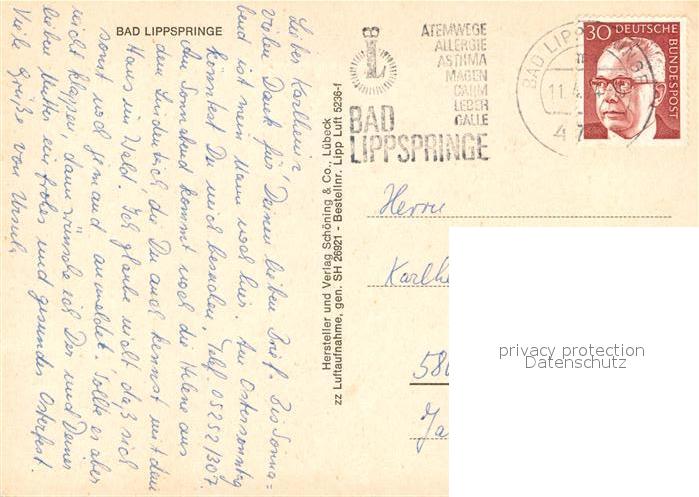 BAD LIPPSPRINGE
Lieber Karlheinz,
vielen Dank für Deinen lieben Brief. Bis Sonna=
bend ist mein Mann noch hier. Am Ostersonntag
könntest Du mich besuchen. Telf. 05252/1307.
Am Sonnabend kommt noch die Helene aus
dem Lindenstich, die Du auch kennst mit dem
Haus im Wald. Ich glaube nicht, daß sich
sonst noch jemand anmeldet. Sollte es aber
nicht klappen, dann wünsche ich Dir und Deiner
lieben Mutter ein frohes und gesundes Osterfest.
Viele Grüße von Ursula
Hersteller und Verlag Schöning & Co., Lübeck
zz Luftaufnahme, gen. SH 26921 - Bestellnr. Lipp Luft 5236-f
L
ATEMWEGE
ALLERGIE
ASTHMA
MAGEN
DARM
LEBER
GALLE
BAD
LIPPSPRINGE
BAD LIPPSPRINGE
11.4.
47
30 DEUTSCHE
BUNDESPOST
Herrn
Karlhe
58
Ja
privacy protection
Datenschutz